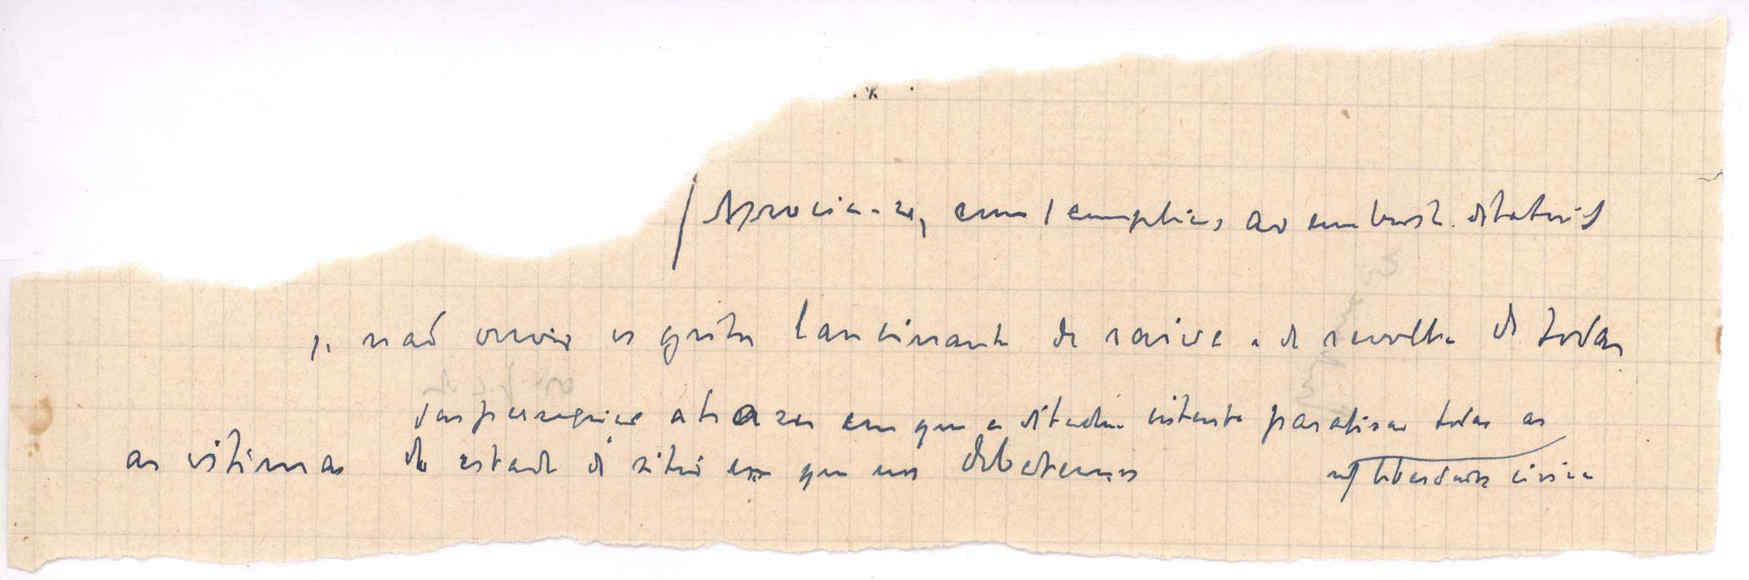 Associa-se, como cumplice, ao embuste ditatorial
p. não ouvir os gritos lancinantes de raiva e de revolta de todas
das perseguições atrozes em que a ditadura intenta paralisar todas as
as vitimas do estado de sitio em que nos debatemos
liberdades civicas